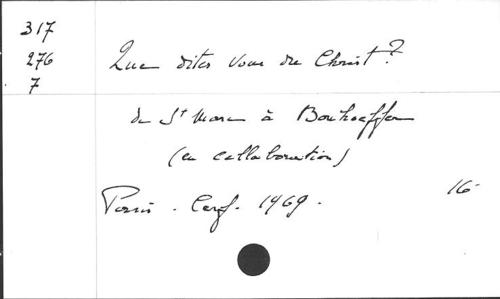 317
276
7
Que dites vous du Christ?
de St Marc à Bonhoeffer
(en collaboration)
Paris. Cerf. 1969.
16-